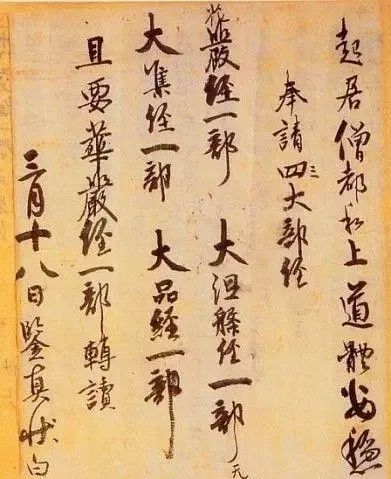 起居僧都和上道體安穏
奉請四三大部経
花嚴経一部 大涅槃経一部无
大集経一部 大品経一部
且要華嚴経一部轉讀
三月十八日鑒真状白